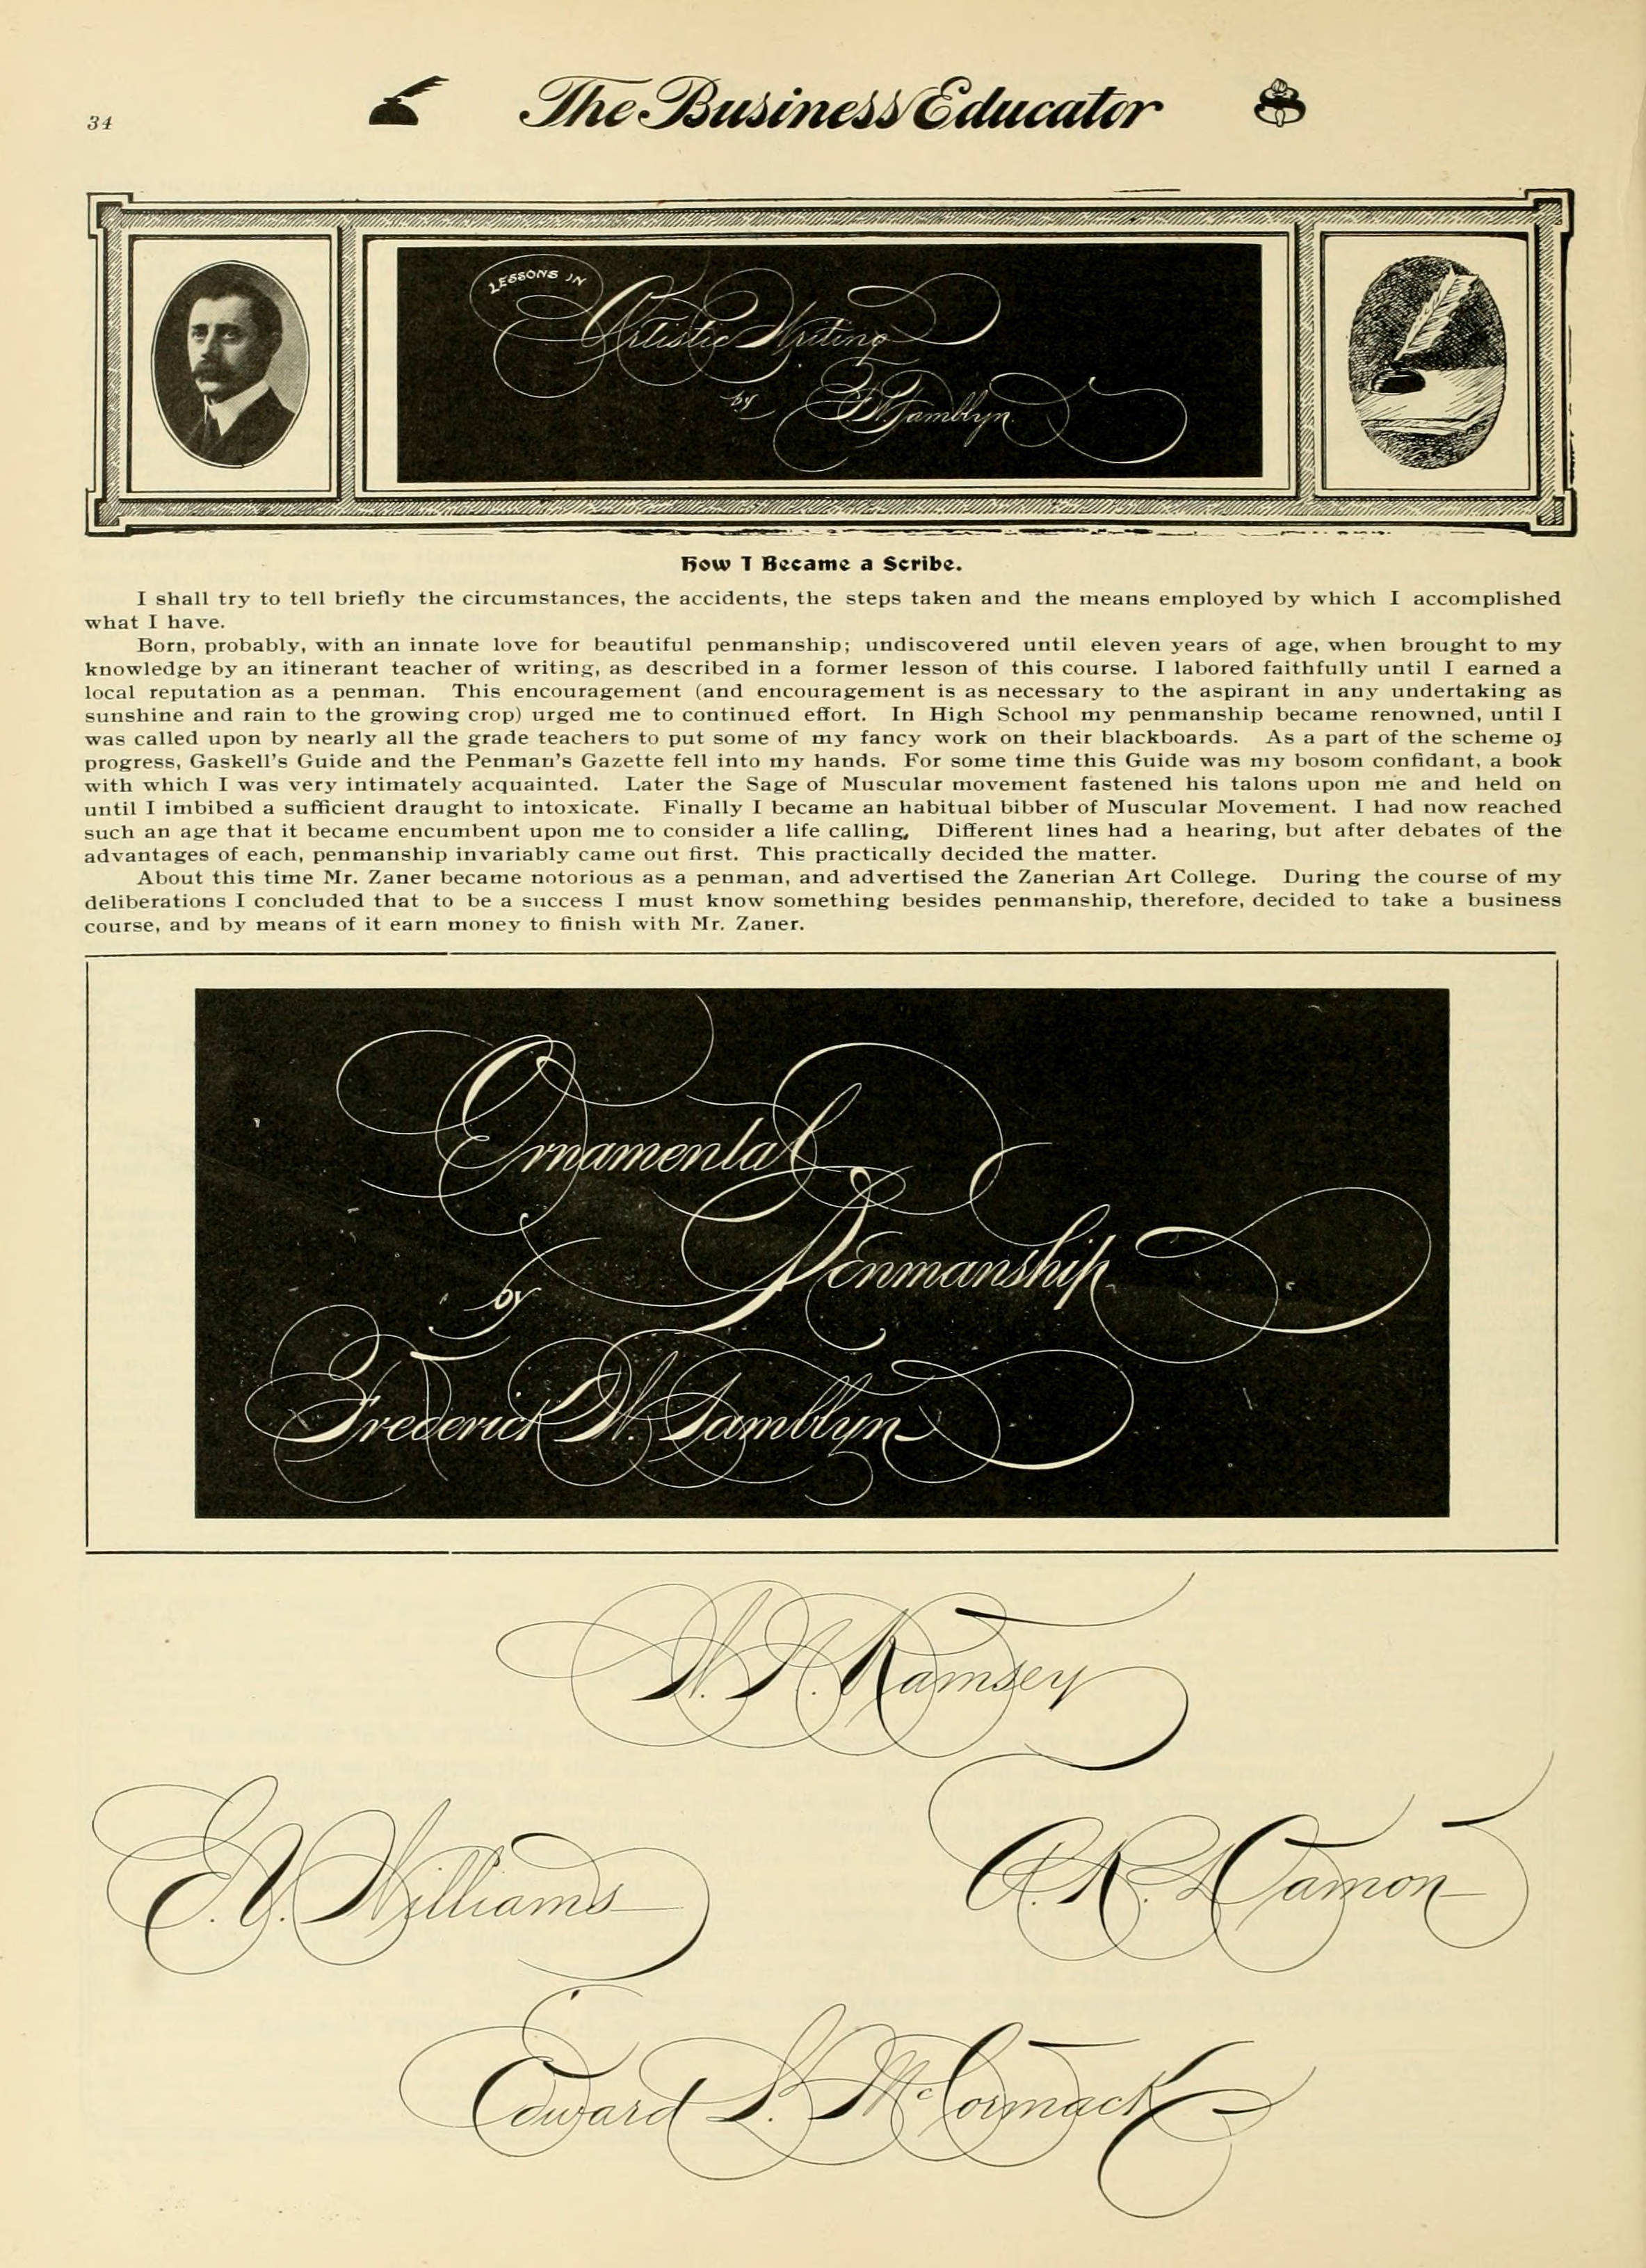 34
The Business Educator
LESSONS IN
Artistic Writing
by
F.W. Tamblyn.
How I Became a Scribe.
I shall try to tell briefly the circumstances, the accidents, the steps taken and the means employed by which I accomplished
what I have.
Born, probably, with an innate love for beautiful penmanship; undiscovered until eleven years of age, when brought to my
knowledge by an itinerant teacher of writing, as described in a former lesson of this course. I labored faithfully until I earned a
local reputation as a penman. This encouragement (and encouragement is as necessary to the aspirant in any undertaking as
sunshine and rain to the growing crop) urged me to continued effort. In High School my penmanship became renowned, until I
was called upon by nearly all the grade teachers to put some of my fancy work on their blackboards. As a part of the scheme of
progress, Gaskell's Guide and the Penman's Gazette fell into my hands. For some time this Guide was my bosom confidant, a book
with which I was very intimately acquainted. Later the Sage of Muscular movement fastened his talons upon me and held on
until I imbibed a sufficient draught to intoxicate. Finally I became an habitual bibber of Muscular Movement. I had now reached
such an age that it became encumbent upon me to consider a life calling, Different lines had a hearing, but after debates of the
advantages of each, penmanship invariably came out first. This practically decided the matter.
About this time Mr. Zaner became notorious as a penman, and advertised the Zanerian Art College. During the course of my
deliberations I concluded that to be a success I must know something besides penmanship, therefore, decided to take a business
course, and by means of it earn money to finish with Mr. Zaner.
Ornamental
Penmanship
by
Frederick W. Tamblyn
Ramsey
Williams
Edward McCormack